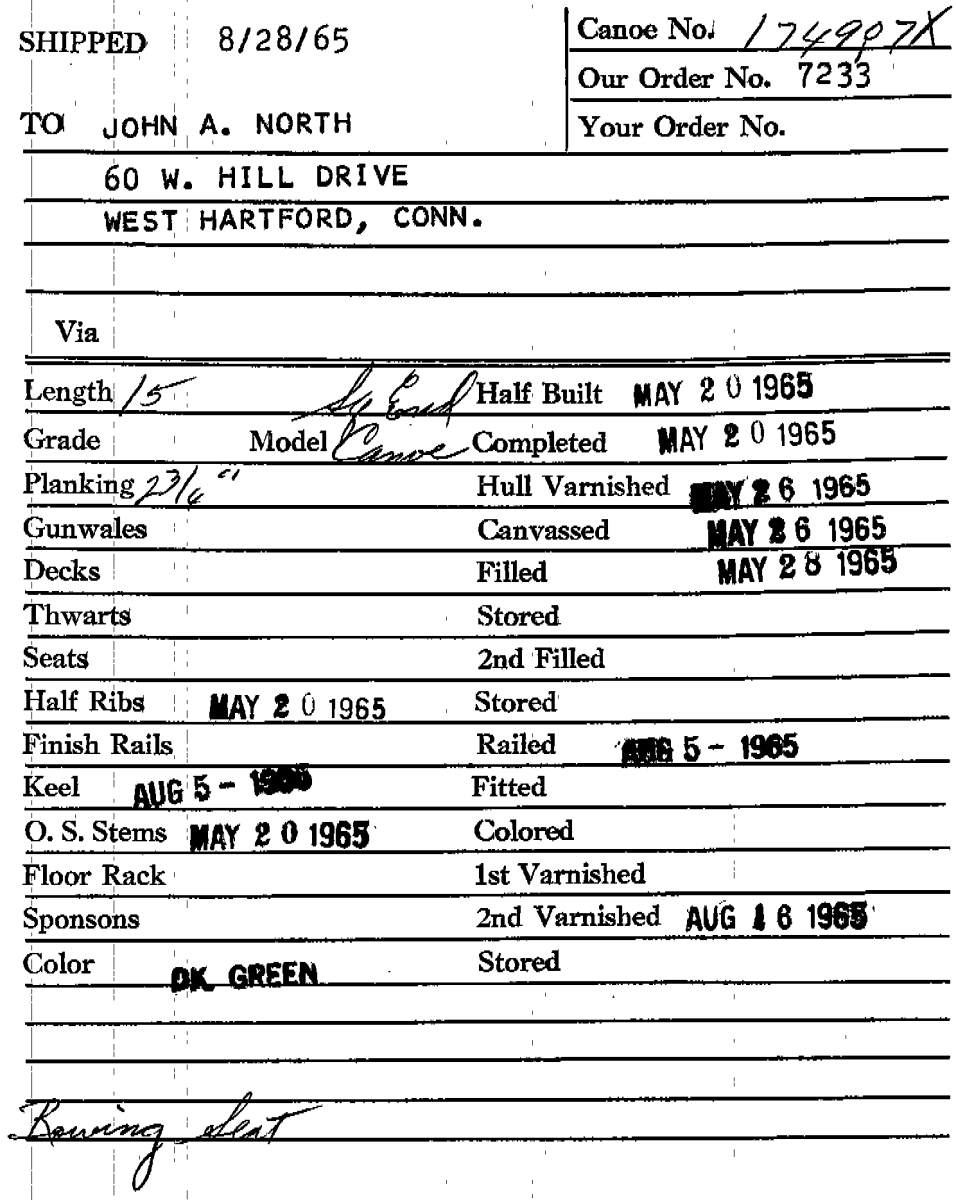 SHIPPED 8/28/65 Canoe No. 174907X
Our Order No. 7233
TO JOHN A. NORTH Your Order No.
60 W. HILL DRIVE
WEST HARTFORD, CONN.
Via
Length 15 Sq End Half Built MAY 20 1965
Grade Model Canoe Completed MAY 20 1965
Planking Hull Varnished MAY 26 1965
Gunwales Canvassed MAY 26 1965
Decks Filled MAY 28 1965
Thwarts Stored
Seats 2nd Filled
Half Ribs MAY 20 1965 Stored
Finish Rails Railed AUG 5 - 1965
Keel AUG 5 - 1965 Fitted
O. S. Stems MAY 20 1965 Colored
Floor Rack 1st Varnished
Sponsons 2nd Varnished AUG 16 1965
Color DK GREEN Stored
Rowing Seat